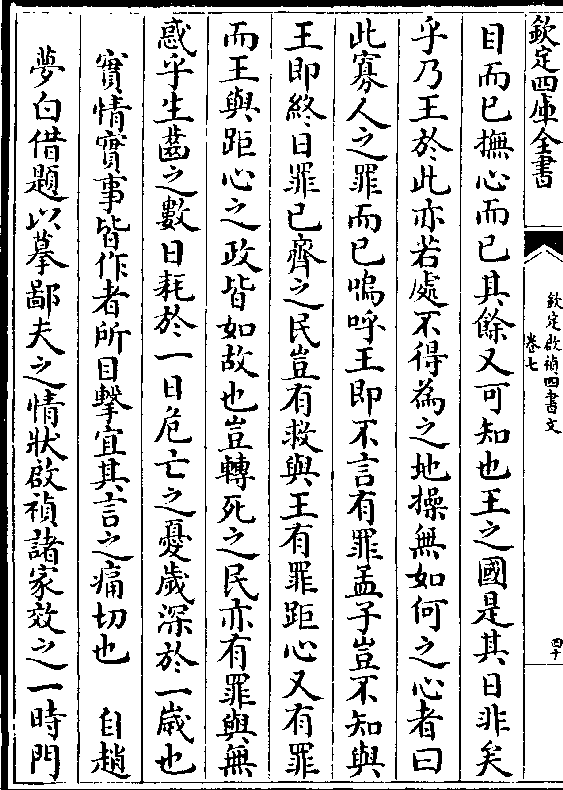 欽定四庫全書
欽定啟禎四書文
卷七
四十
目而已撫心而已其餘又可知也王之國是其日非矣
乎乃王於此亦若處不得為之地操無如何之心者曰
此寡人之罪而已嗚呼王即不言有罪孟子豈不知與
王即終日罪己齊之民豈有救與王有罪距心又有罪
而王與距心之政皆如故也豈轉死之民亦有罪與無
惑乎生齒之數日耗於一日危亡之憂歲深於一歲也
實情實事皆作者所目擊宜其言之痛切也　自趙
夢白借題以摹鄙夫之情狀啟禎諸家效之一時門